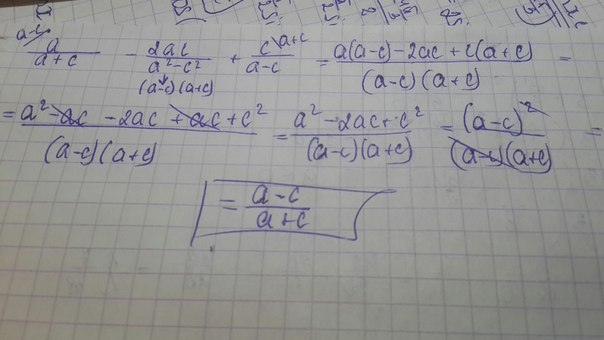 a-c\ a/(a+c) - 2ac/(a²-c²) + c\a+c/(a-c) = (a(a-c)-2ac+c(a+c))/((a-c)(a+c)) =
(a-c)(a+c)
= (a²-ac-2ac+ac+c²)/((a-c)(a+c)) = (a²-2ac+c²)/((a-c)(a+c)) = (a-c)²/((a-c)(a+c)) =
= (a-c)/(a+c)